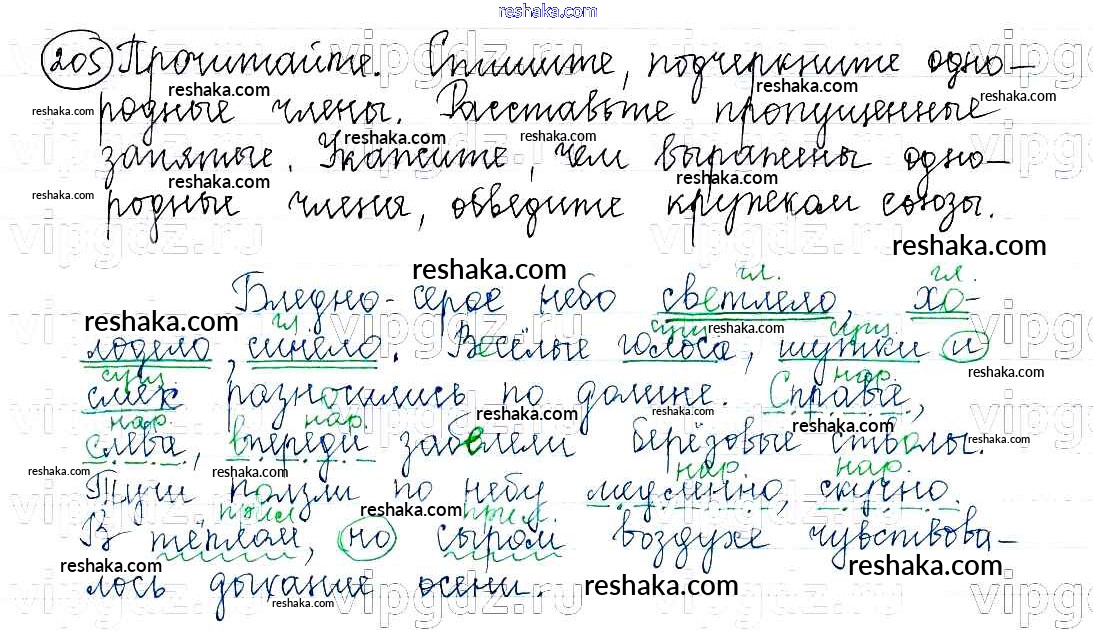 reshaka.com
205 Прочитайте. Спишите, подчеркните одно-
родные члены. Расставьте пропущенные
запятые. Укажите, чем выражены одно-
родные члены, обведите кружкам союзы.
Бледно-серое небо светлело, хо-
гл. гл.
лодело, синело. Весёлые голоса, шутки и
гл. сущ. сущ.
смех разносились по долине. Справа,
сущ нар.
слева, впереди забелели берёзовые стволы.
нар. нар.
Тучи ползли по небу медленно, скучно.
нар. нар.
В тёплом, но сыром воздухе чувствова-
прил прил.
лось дыхание осени.